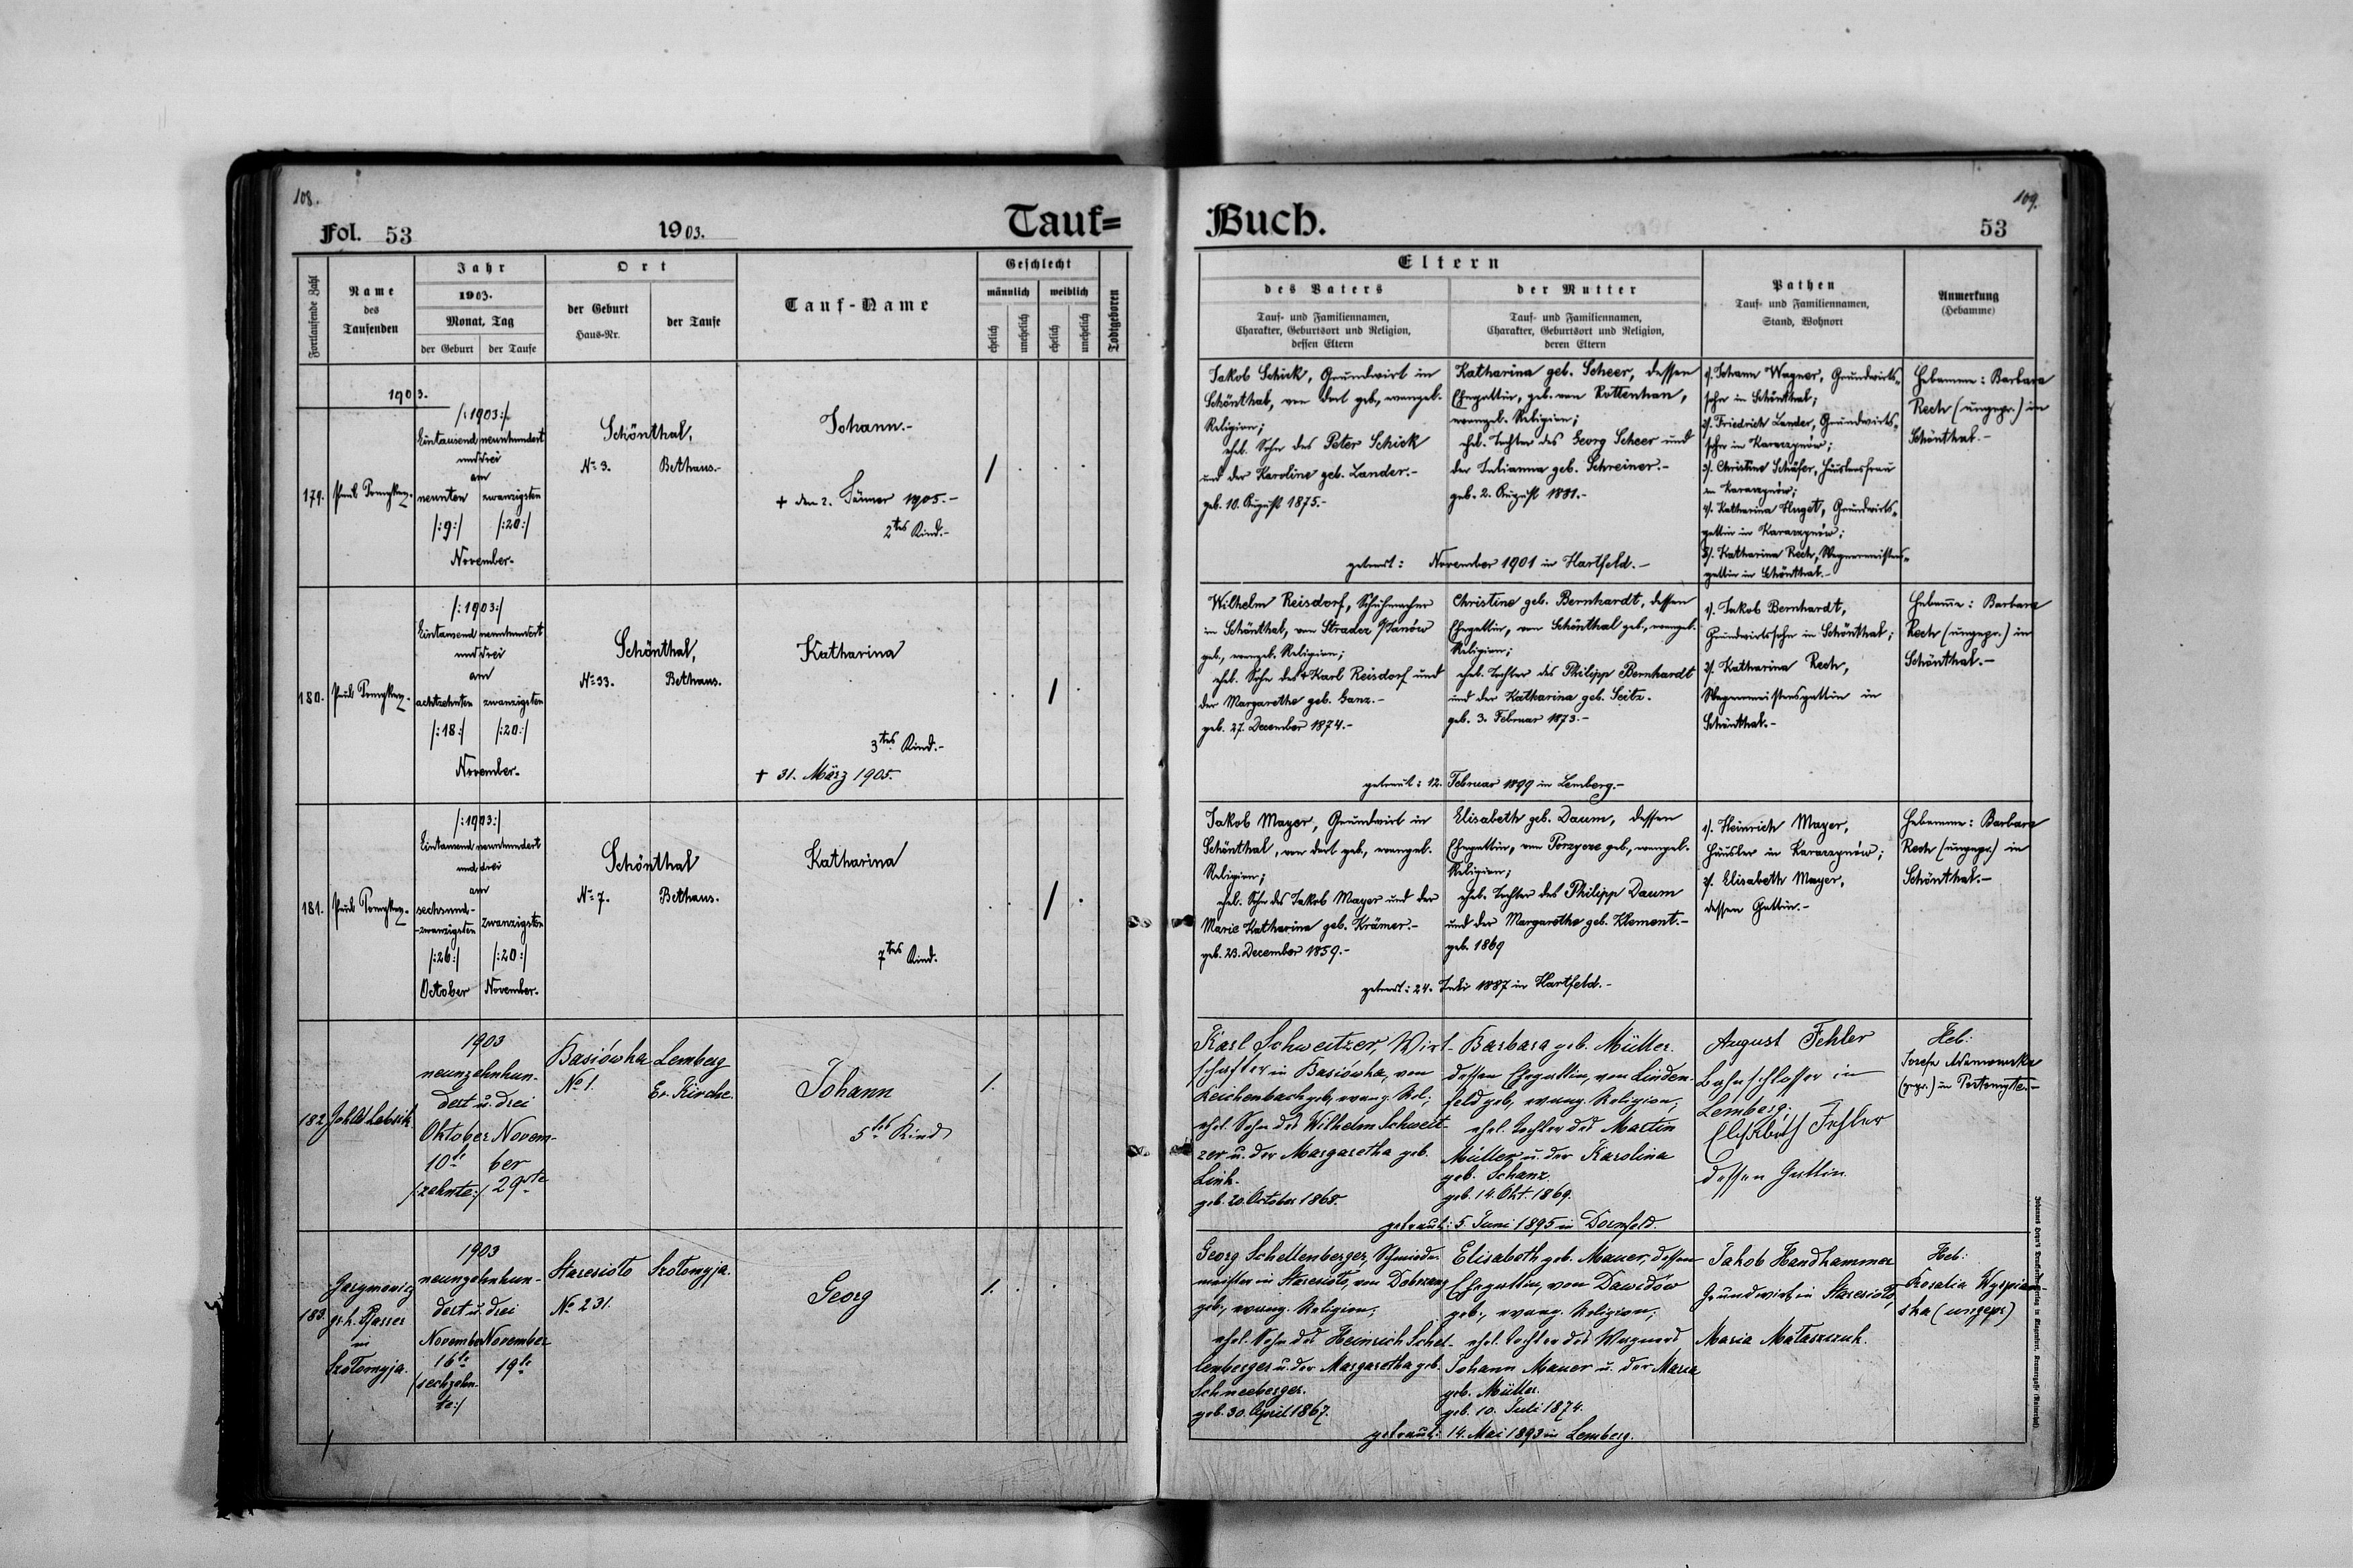 108.
Fol. 53
1903.
Tauf=
Fortlaufende Zahl
Name
des
Taufenden
Jahr
1903.
Monat, Tag
der Geburt
der Taufe
Ort
der Geburt
Haus-Nr.
der Taufe
Tauf-Name
Geschlecht
männlich
weiblich
ehelich
unehelich
ehelich
unehelich
Todtgeboren
1903.
179.
/:1903:/
Eintausend neunhundert
und drei
am
neunten zwanzigsten
/:9:/ /:20:/
November.
Schönthal,
No 9. Bethaus.-
Johann.-
+ den 2. Jänner 1905.-
2tes Kind.-
180.
/:1903:/
Eintausend neunhundert
und drei
am
achtzehnten zwanzigsten
/:18:/ /:20:/
November.
Schönthal,
No 33. Bethaus.
Katharina
3tes Kind.-
+ 31. März 1905.
181.
/:1903:/
Eintausend neunhundert
und drei
am
sechsund-
-zwanzigsten zwanzigsten
/:26:/ /:20:/
October November.
Schönthal
No 7. Bethaus.
Katharina
7tes Kind.
182
1903
neunzehnhun-
dert u. drei
Oktober Novem-
10te ber
/:zehnte:/ 29ste
Basiówka Lemberg
No 1. Ev. Kirche.
Johann
5tes Kind
1.
183.
gr. k. Pfarrer
in
Szołomyja.
1903
neunzehnhun-
dert u. drei
November November
16te 19te
/:sechzehn-
te:/
Staresioło Szołomyja.
No 231.
Georg
1.
109.
Buch.
53
Eltern
des Vaters
Tauf- und Familiennamen,
Charakter, Geburtsort und Religion,
dessen Eltern
der Mutter
Tauf- und Familiennamen,
Charakter, Geburtsort und Religion,
deren Eltern
Pathen
Tauf- und Familiennamen,
Stand, Wohnort
Anmerkung
(Hebamme)
Jakob Schick, Grundwirt in
Schönthal, von dort geb., evangel.
Religion;
ehel. Sohn des Peter Schick
und der Karoline geb. Lander.-
geb. 10. August 1875.-
Katharina geb. Scheer, dessen
Ehegattin, geb. von Rottenhan,
evangel. Religion;
ehel. Tochter des Georg Scheer und
der Julianna geb. Schreiner.-
geb. 2. August 1881.-
getraut: November 1901 in Hartfeld.-
1). Johann Wagner, Grundwirts-
sohn in Schönthal;
2). Friedrich Lander, Grundwirts-
sohn in Karaczynów;
3). Christine Schäfer, Häuslersfrau
in Karaczynów;
4). Katharina Huget, Grundwirts-
gattin in Karaczynów;
5). Katharina Rech, Wagnermeisters-
gattin in Schönthal.-
Hebamme: Barbara
Rech (ungepr.) in
Schönthal.-
Wilhelm Reisdorf, Schuhmacher
in Schönthal, von Stradcz /Janów
geb., evangel. Religion;
ehel. Sohn des + Karl Reisdorf und
der Margarethe geb. Ganz.-
geb. 27. December 1874.-
Christine geb. Bernhardt, dessen
Ehegattin, von Schönthal geb., evangel.
Religion;
ehel. Tochter des Philipp Bernhardt
und der Katharina geb. Seitz.-
geb. 3. Februar 1873.-
getraut: 12. Februar 1899 in Lemberg.-
1). Jakob Bernhardt,
Grundwirtssohn in Schönthal;
2). Katharina Rech,
Wagnermeistersgattin in
Schönthal.-
Hebamme: Barbara
Rech (ungepr.) in
Schönthal.-
Jakob Mayer, Grundwirt in
Schönthal, von dort geb., evangel.
Religion;
ehel. Sohn des Jakob Mayer und der
Marie Katharina geb. Krämer.-
geb. 23. December 1859.-
Elisabeth geb. Daum, dessen
Ehegattin, von Porzycze geb., evangel.
Religion;
ehel. Tochter des Philipp Daum
und der Margarethe geb. Klement.-
geb. 1869
getraut: 24. Juli 1887 in Hartfeld.-
1). Heinrich Mayer,
Häusler in Karaczynów;
2). Elisabeth Mayer,
dessen Gattin.-
Hebamme: Barbara
Rech (ungepr.) in
Schönthal.-
Karl Schweitzer, Wirt-
schafter in Basiówka, von
Reichenbach geb., evang. Rel.;
ehel. Sohn des Wilhelm Schweit-
zer u. der Margaretha geb.
Link.
geb. 20. October 1868.
Barbara geb. Müller.
dessen Ehegattin, von Linden-
feld geb., evang. Religion;
ehel. Tochter des Martin
Müller u. der Karolina
geb. Schanz.
geb. 14. Okt. 1869.
getraut: 5. Juni 1895 in Dornfeld.
August Fehler
Bahnschlosser in
Lemberg;
Elisabeth Fehler
dessen Gattin.
Heb:
Georg Schellenberger, Schmiede-
meister in Staresioło, von Dobrzany
geb., evang. Religion;
ehel. Sohn des Heinrich Schel-
lenberger u. der Margaretha geb.
Schneeberger.
geb. 30. April 1867.
Elisabeth geb. Mauer, dessen
Ehegattin, von Dawidów
geb., evang. Religion;
ehel. Tochter des Wagners
Johann Mauer u. der Maria
geb. Müller.
geb. 10. Juli 1874.
getraut: 14. Mai 1893 in Lemberg.
Jakob Handhammer
Grundwirt in Staresioło,
Maria Mataszczuk.
Heb:
Rosalia Wyspian-
ska (ungepr)